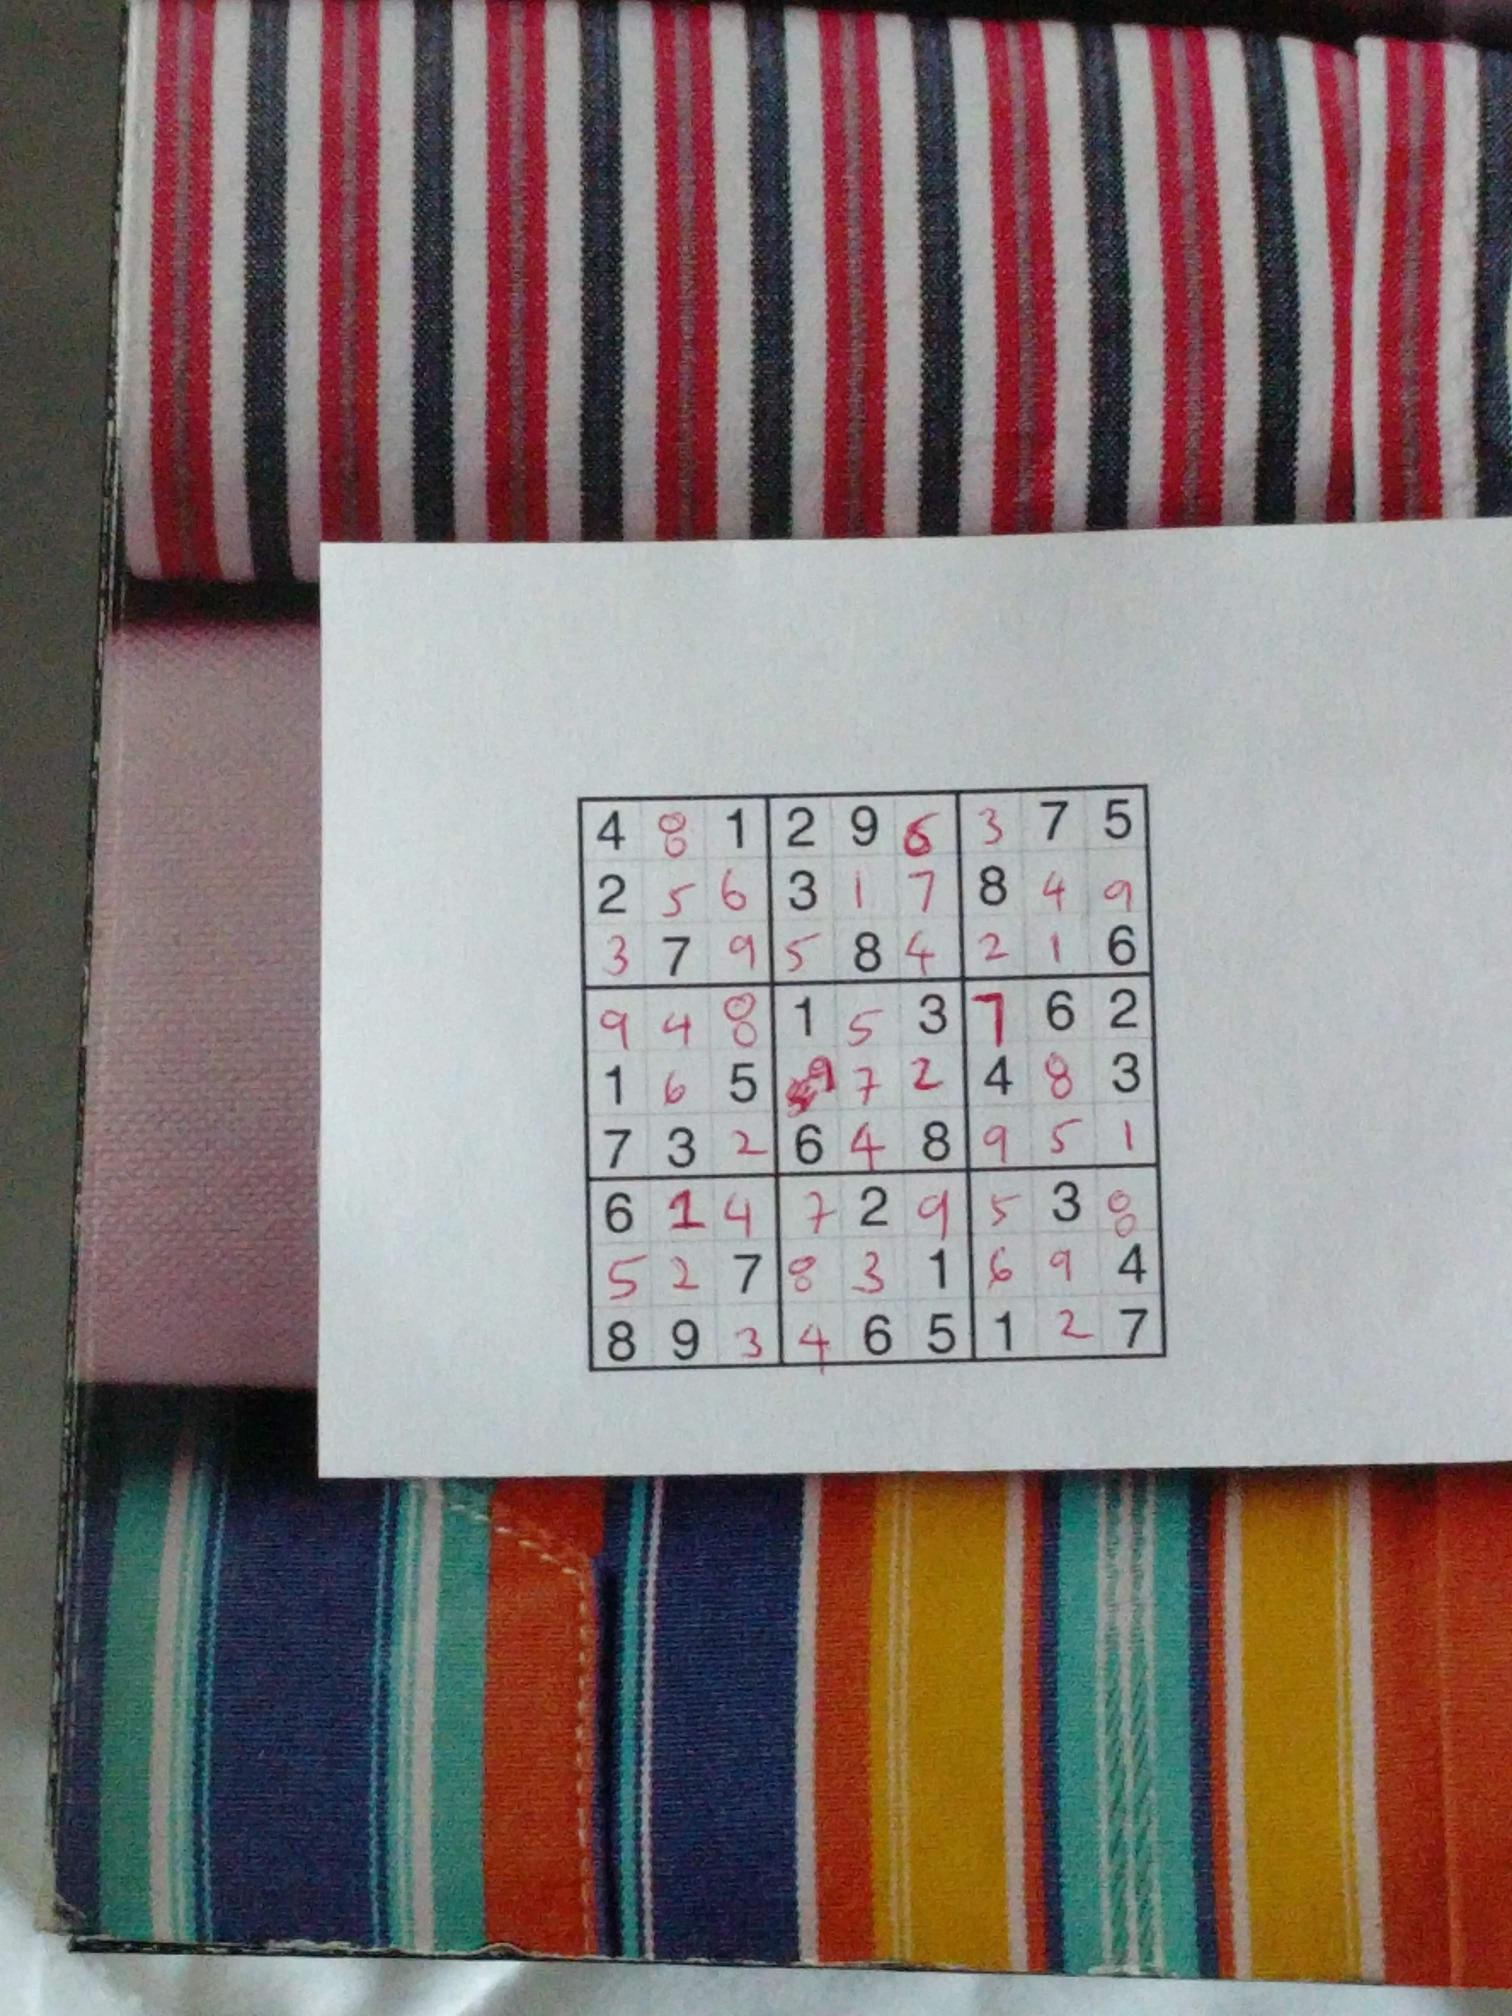 4 8 1 2 9 6 3 7 5
2 5 6 3 1 7 8 4 9
3 7 9 5 8 4 2 1 6
9 4 8 1 5 3 7 6 2
1 6 5 9 7 2 4 8 3
7 3 2 6 4 8 9 5 1
6 1 4 7 2 9 5 3 8
5 2 7 8 3 1 6 9 4
8 9 3 4 6 5 1 2 7